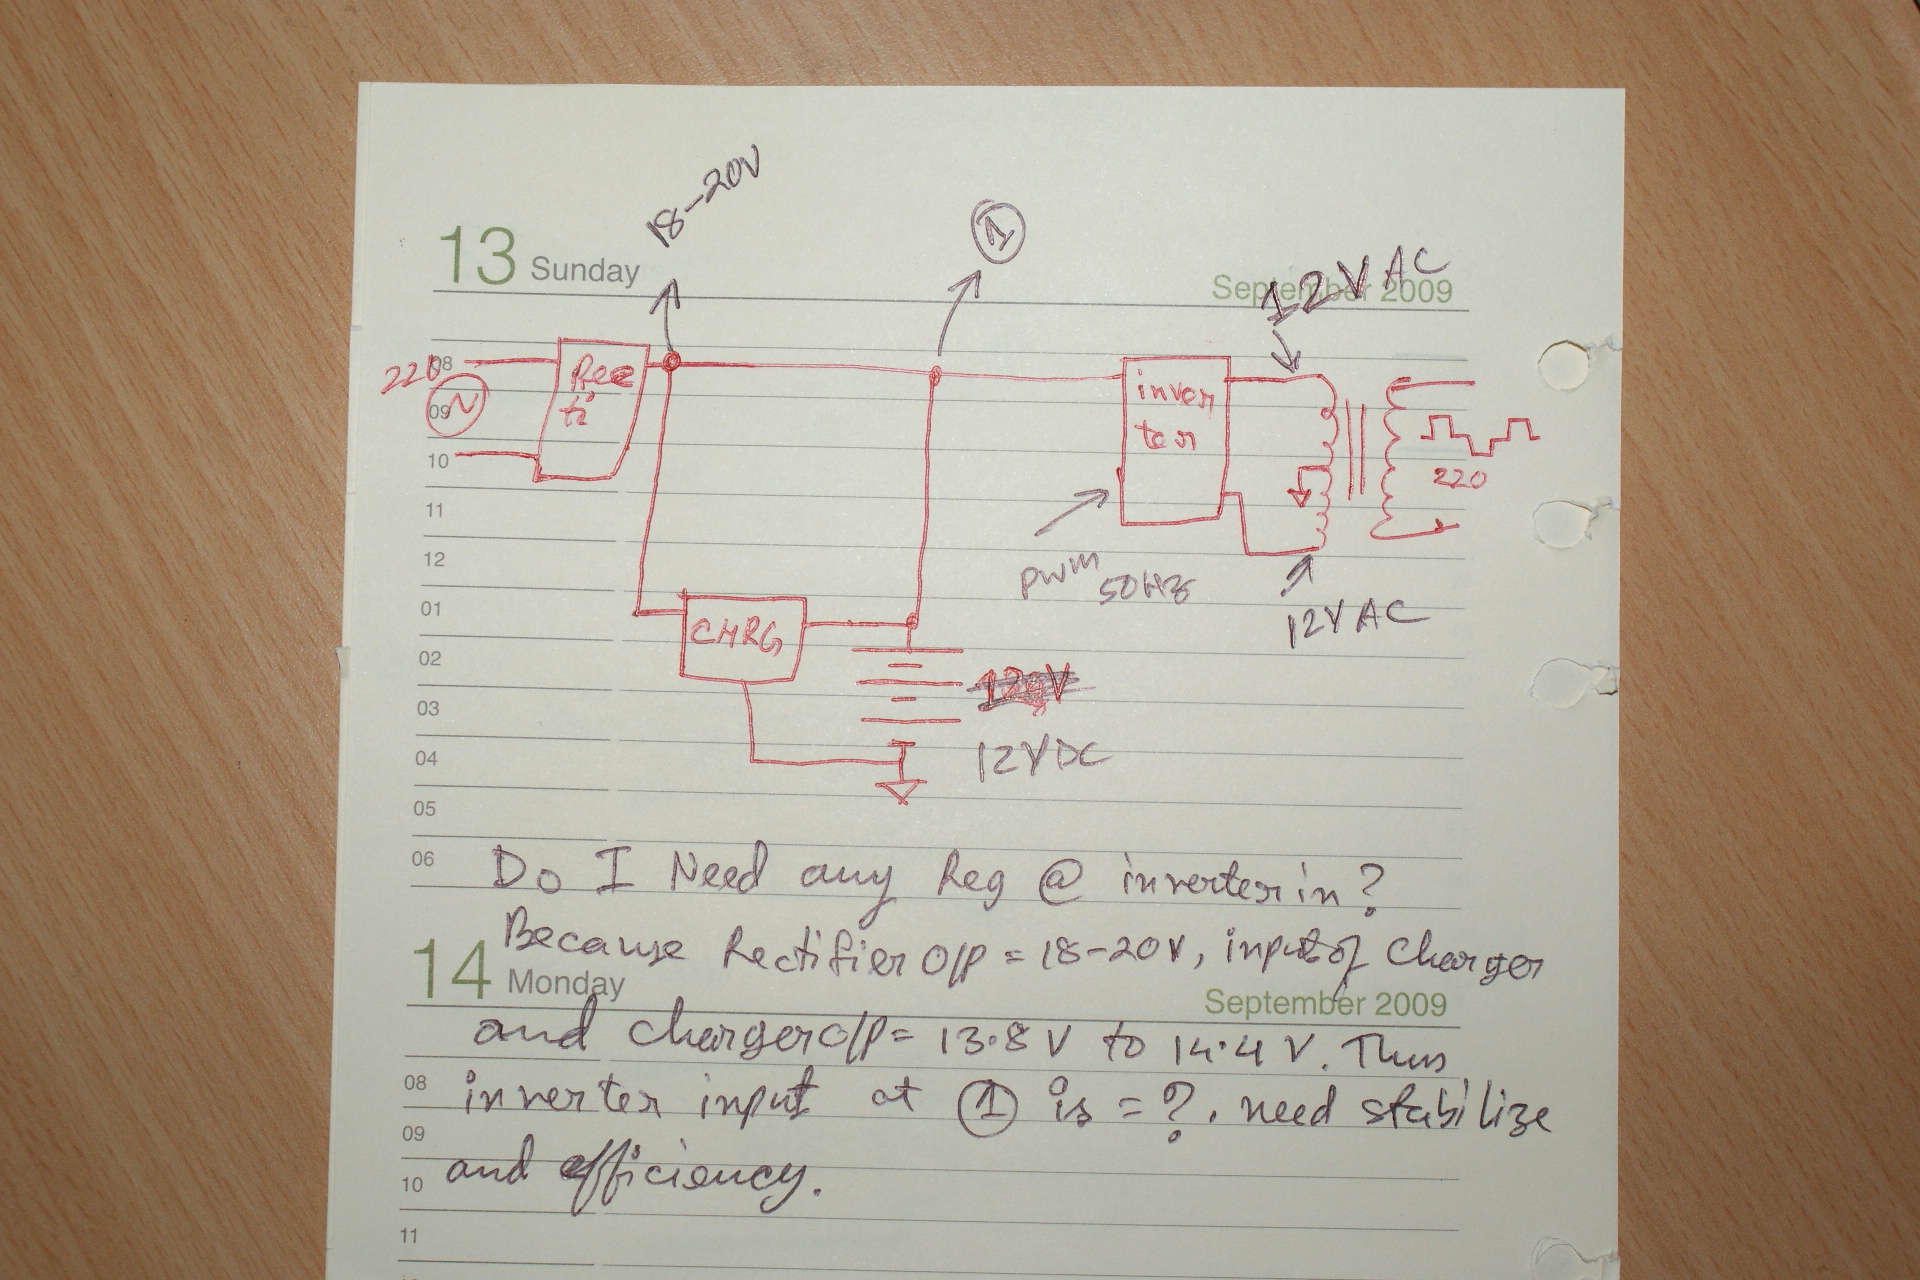 18-20V
①
13 Sunday
September 2009
12V AC
220
08
Rec
ti
inver
ter
09
10
220
11
PWM
50Hz
12
12V AC
01
CHRG
02
03
12V DC
04
05
06
Do I Need any Reg @ inverter in?
Because Rectifier O/P = 18-20V, input of Charger
14 Monday
September 2009
and charger o/p = 13.8 V to 14.4 V. Thus
08
inverter input at ① is = ?. need stabilize
09
and efficiency.
10
11